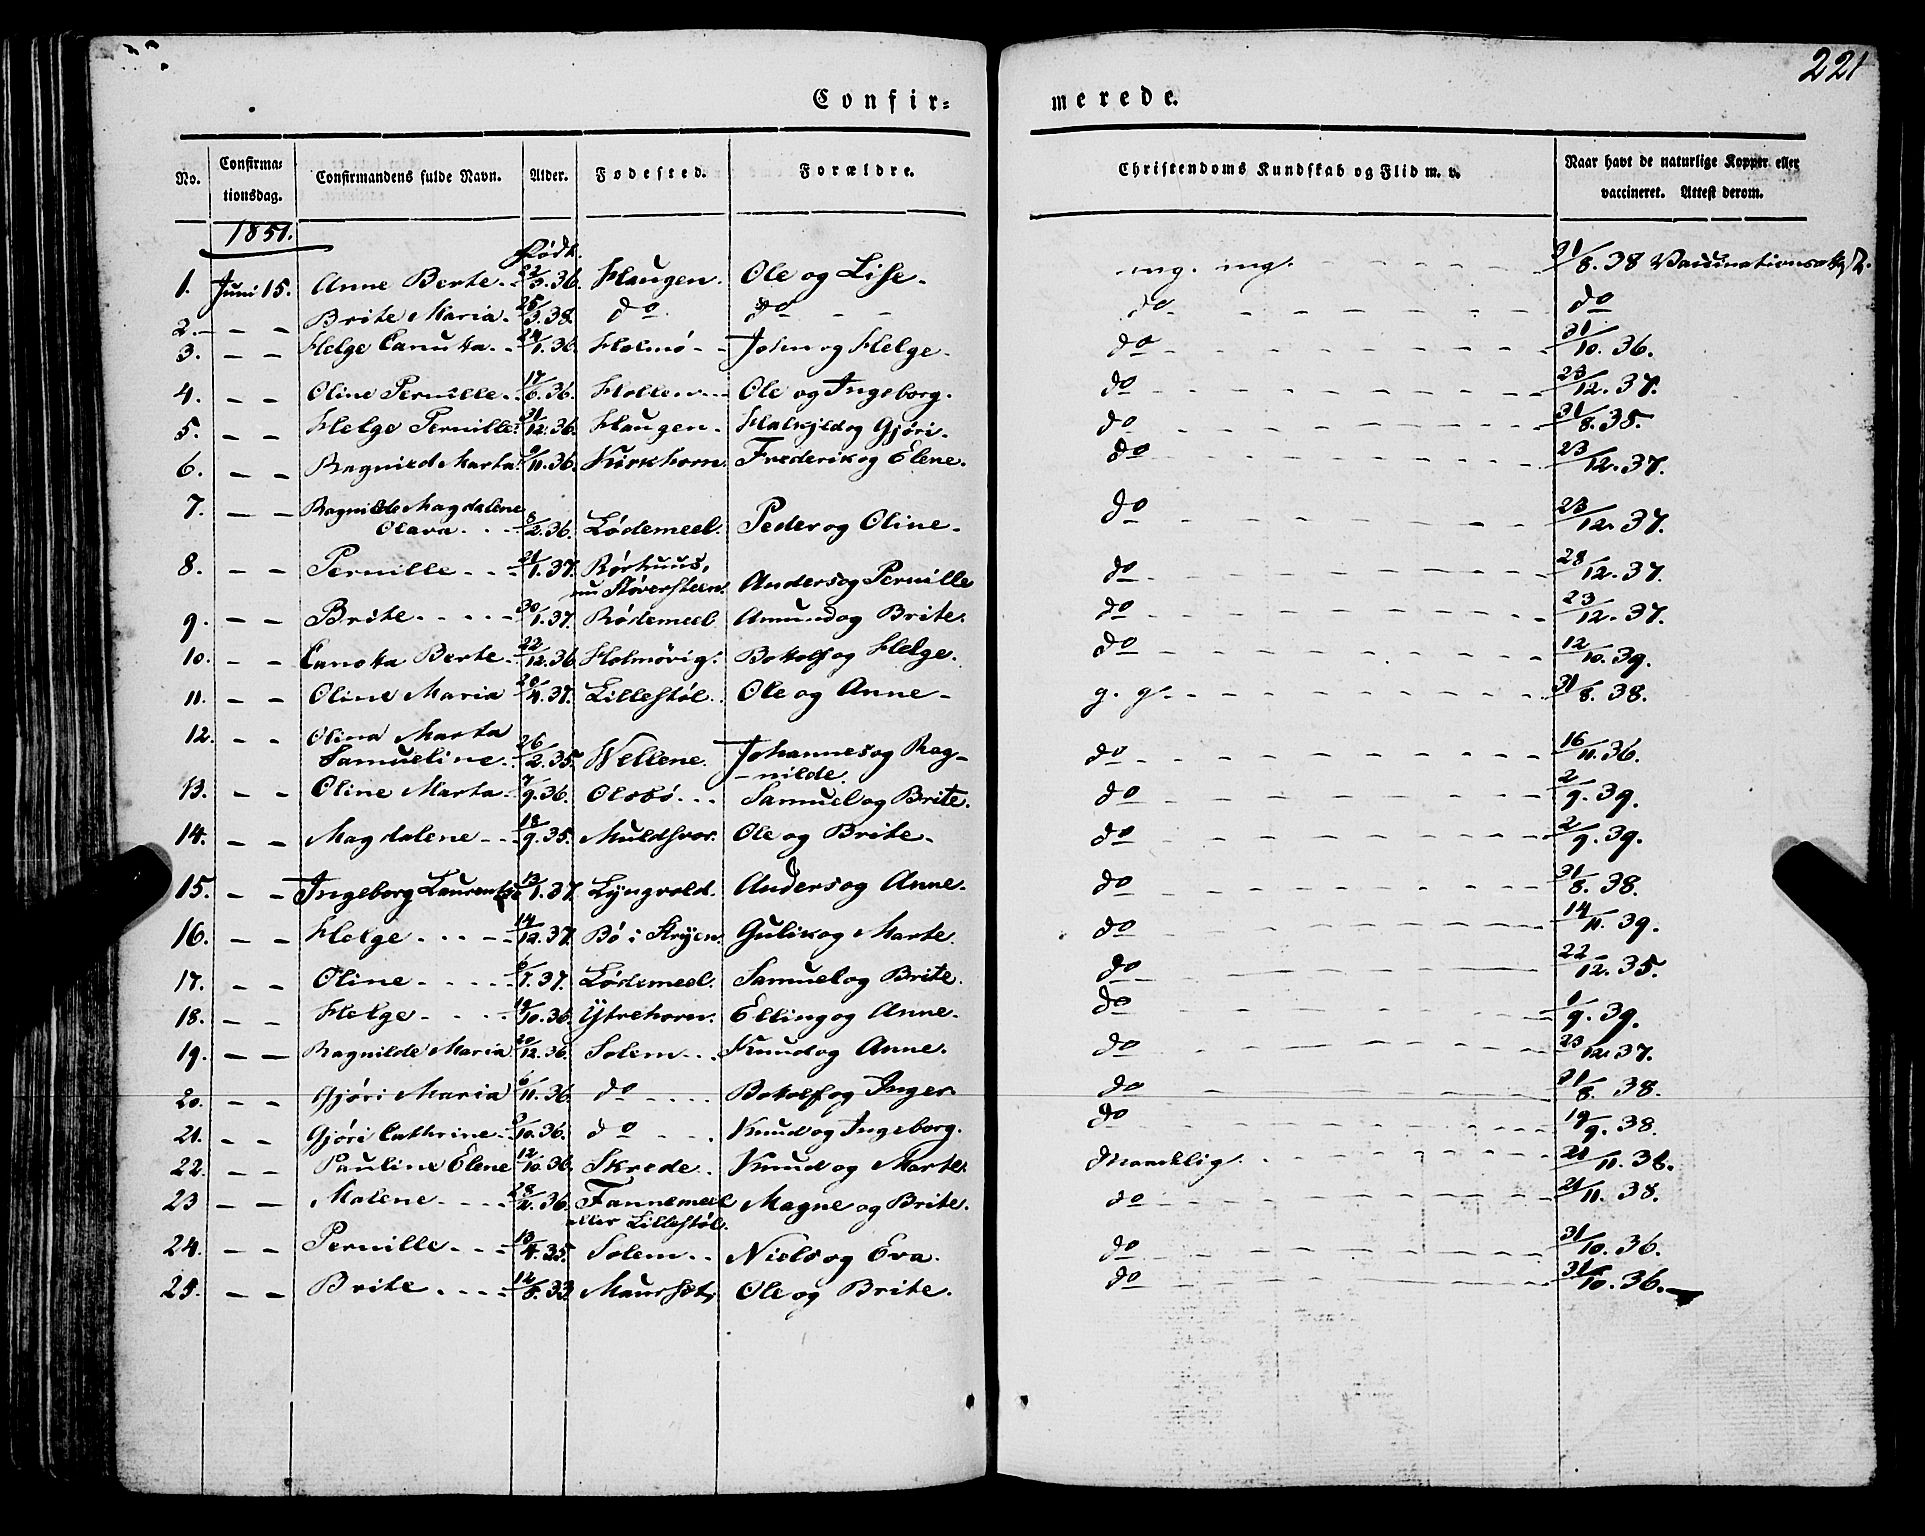 221
Confir= merede.
No. Confirma= tionsdag. Confirmandens fulde Navn. Alder. Fødested. Forældre. Christendoms Kundskab og Flid m. v. Naar havt de naturlige Kopper eller vaccineret. Attest derom.
1851. Født.
1. Juni 15. Anne Berte 22/3.36. Haugen. Ole og Lise. mg. mg. 31/8.38
2. Brite Maria 25/3.38. do do do do
3. Helge Canuta 24/1.36. Holmø John og Helge. do 31/10.36.
4. Oline Pernille 17/6.36. Hollen Ole og Ingeborg. do 23/12.37.
5. Helge Pernille 21/12.36. Haugen Gjøri. do 31/8.38.
6. Ragnild Marta 9/11.36. Kirkhorn Frederik og Elene. do 23/12.37.
7. Ragnilde Magdalene
Olava 8/2.36. Lødemeel. Peder og Oline. do 23/12.37.
8. Pernille 21/1.37. Rørhuus,
nu Støversteen. Anders og Pernille do 23/12.37.
9. Brite 30/1.37. Rødemeel Amund og Brite. do 23/12.37.
10. Canota Berte 22/12.36 Holmørig. Botolf og Helge. do 12/10.39.
11. Oline Maria 28/4.37. Lillestøl. Ole og Anne g. g. 31/8.38.
12. Olina Marta
Samueline 26/2.35. Wellene. Johannes og Rag-
nilde. do 16/11.36.
13. Oline Marta 7/9.36. Olsbø Samuel og Brite. do 2/9.39.
14. Magdalene 18/9.35. Muldsvor. Ole og Brite do 2/9.39.
15. Ingeborg 13/1.37 Lyngvold. Anders og Anne. do 31/8.38.
16. Helge 14/12.37. Bø i Stryen. Gulik og Marte. do 14/11.39.
17. Oline Lødemeel. Samuel og Brite. do 22/12.35.
18. Helge 19/10.36. Ytrehorn. Elling og Anne. do 1/9.39.
19. Ragnilde Maria 20/12.36. Solem Knud og Anne. do 23/12.37.
20. Gjøri Maria 11.36. do Botolf og Inger. do 31/8.38.
21. Gjøri Cathrine 10.36. do Knud og Ingeborg. do 19/9.38.
22. Pauline Elene 12/10.36. Skrede Knud og Marte. Maadelig. 21/11.38.
23 Malene 36. Fannemeel
eller Lillestøl. Magne og Brite. do 21/11.38.
24. Pernille 13/4.35. Solem Niels og Eva. do 31/10.36.
25. Brite 12/8.33. Maurset, Ole og Brite. do 31/10.36.